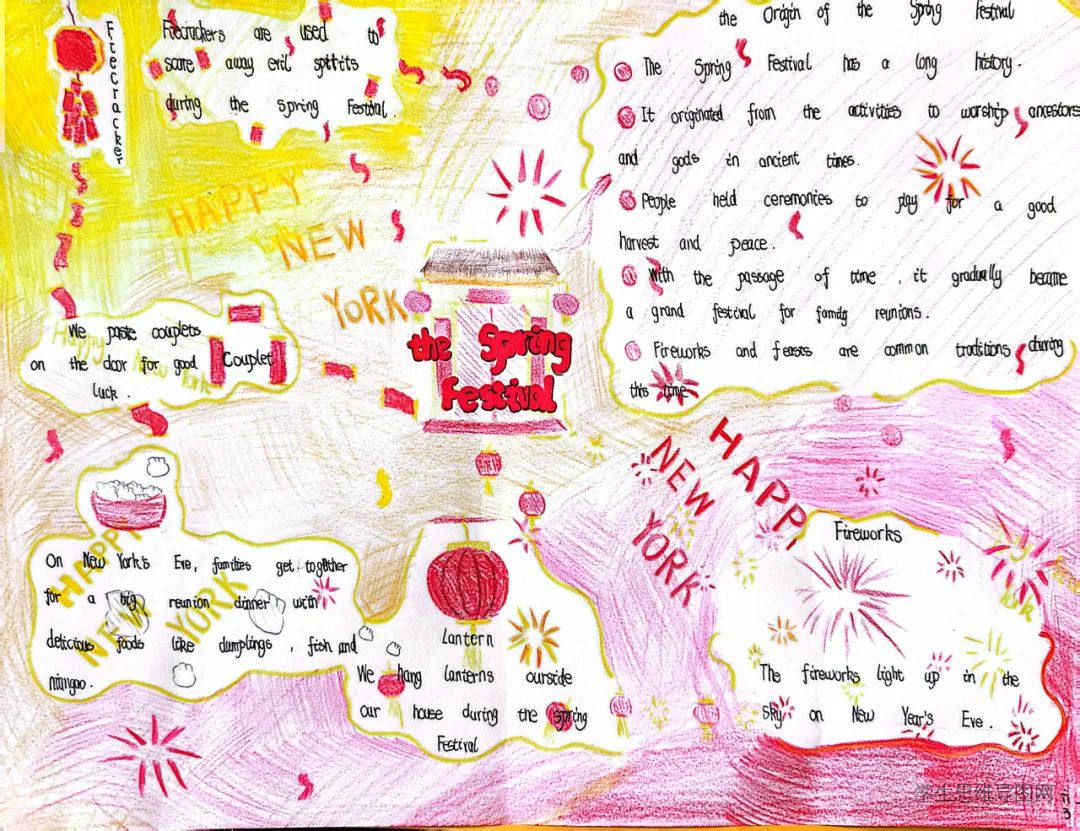 Firecracker
Firecrackers are used to
scare away evil spirits
during the spring Festival.
the Origin of the Spring Festival
The Spring Festival has a long history.
It originated from the activities to worship ancestors
and gods in ancient times.
People held ceremonies to play for a good
harvest and peace.
With the passage of time, it gradually became
a grand festival for family reunions.
Fireworks and feasts are common traditions during
this time
HAPPY
NEW
YORK
the Spring
Festival
We paste couplets
on the door for good
luck.
Couplet
Happy
New
York
HAPPY
NEW
YORK
On New York's Eve, families get together
for a big reunion dinner with
delicious foods like dumplings, fish and
niangao.
HAPPY
NEW
YORK
Lantern
We hang lanterns ourside
our house during the spring
Festival
Fireworks
The fireworks light up in the
sky on New Year's Eve.
学生思维导图网